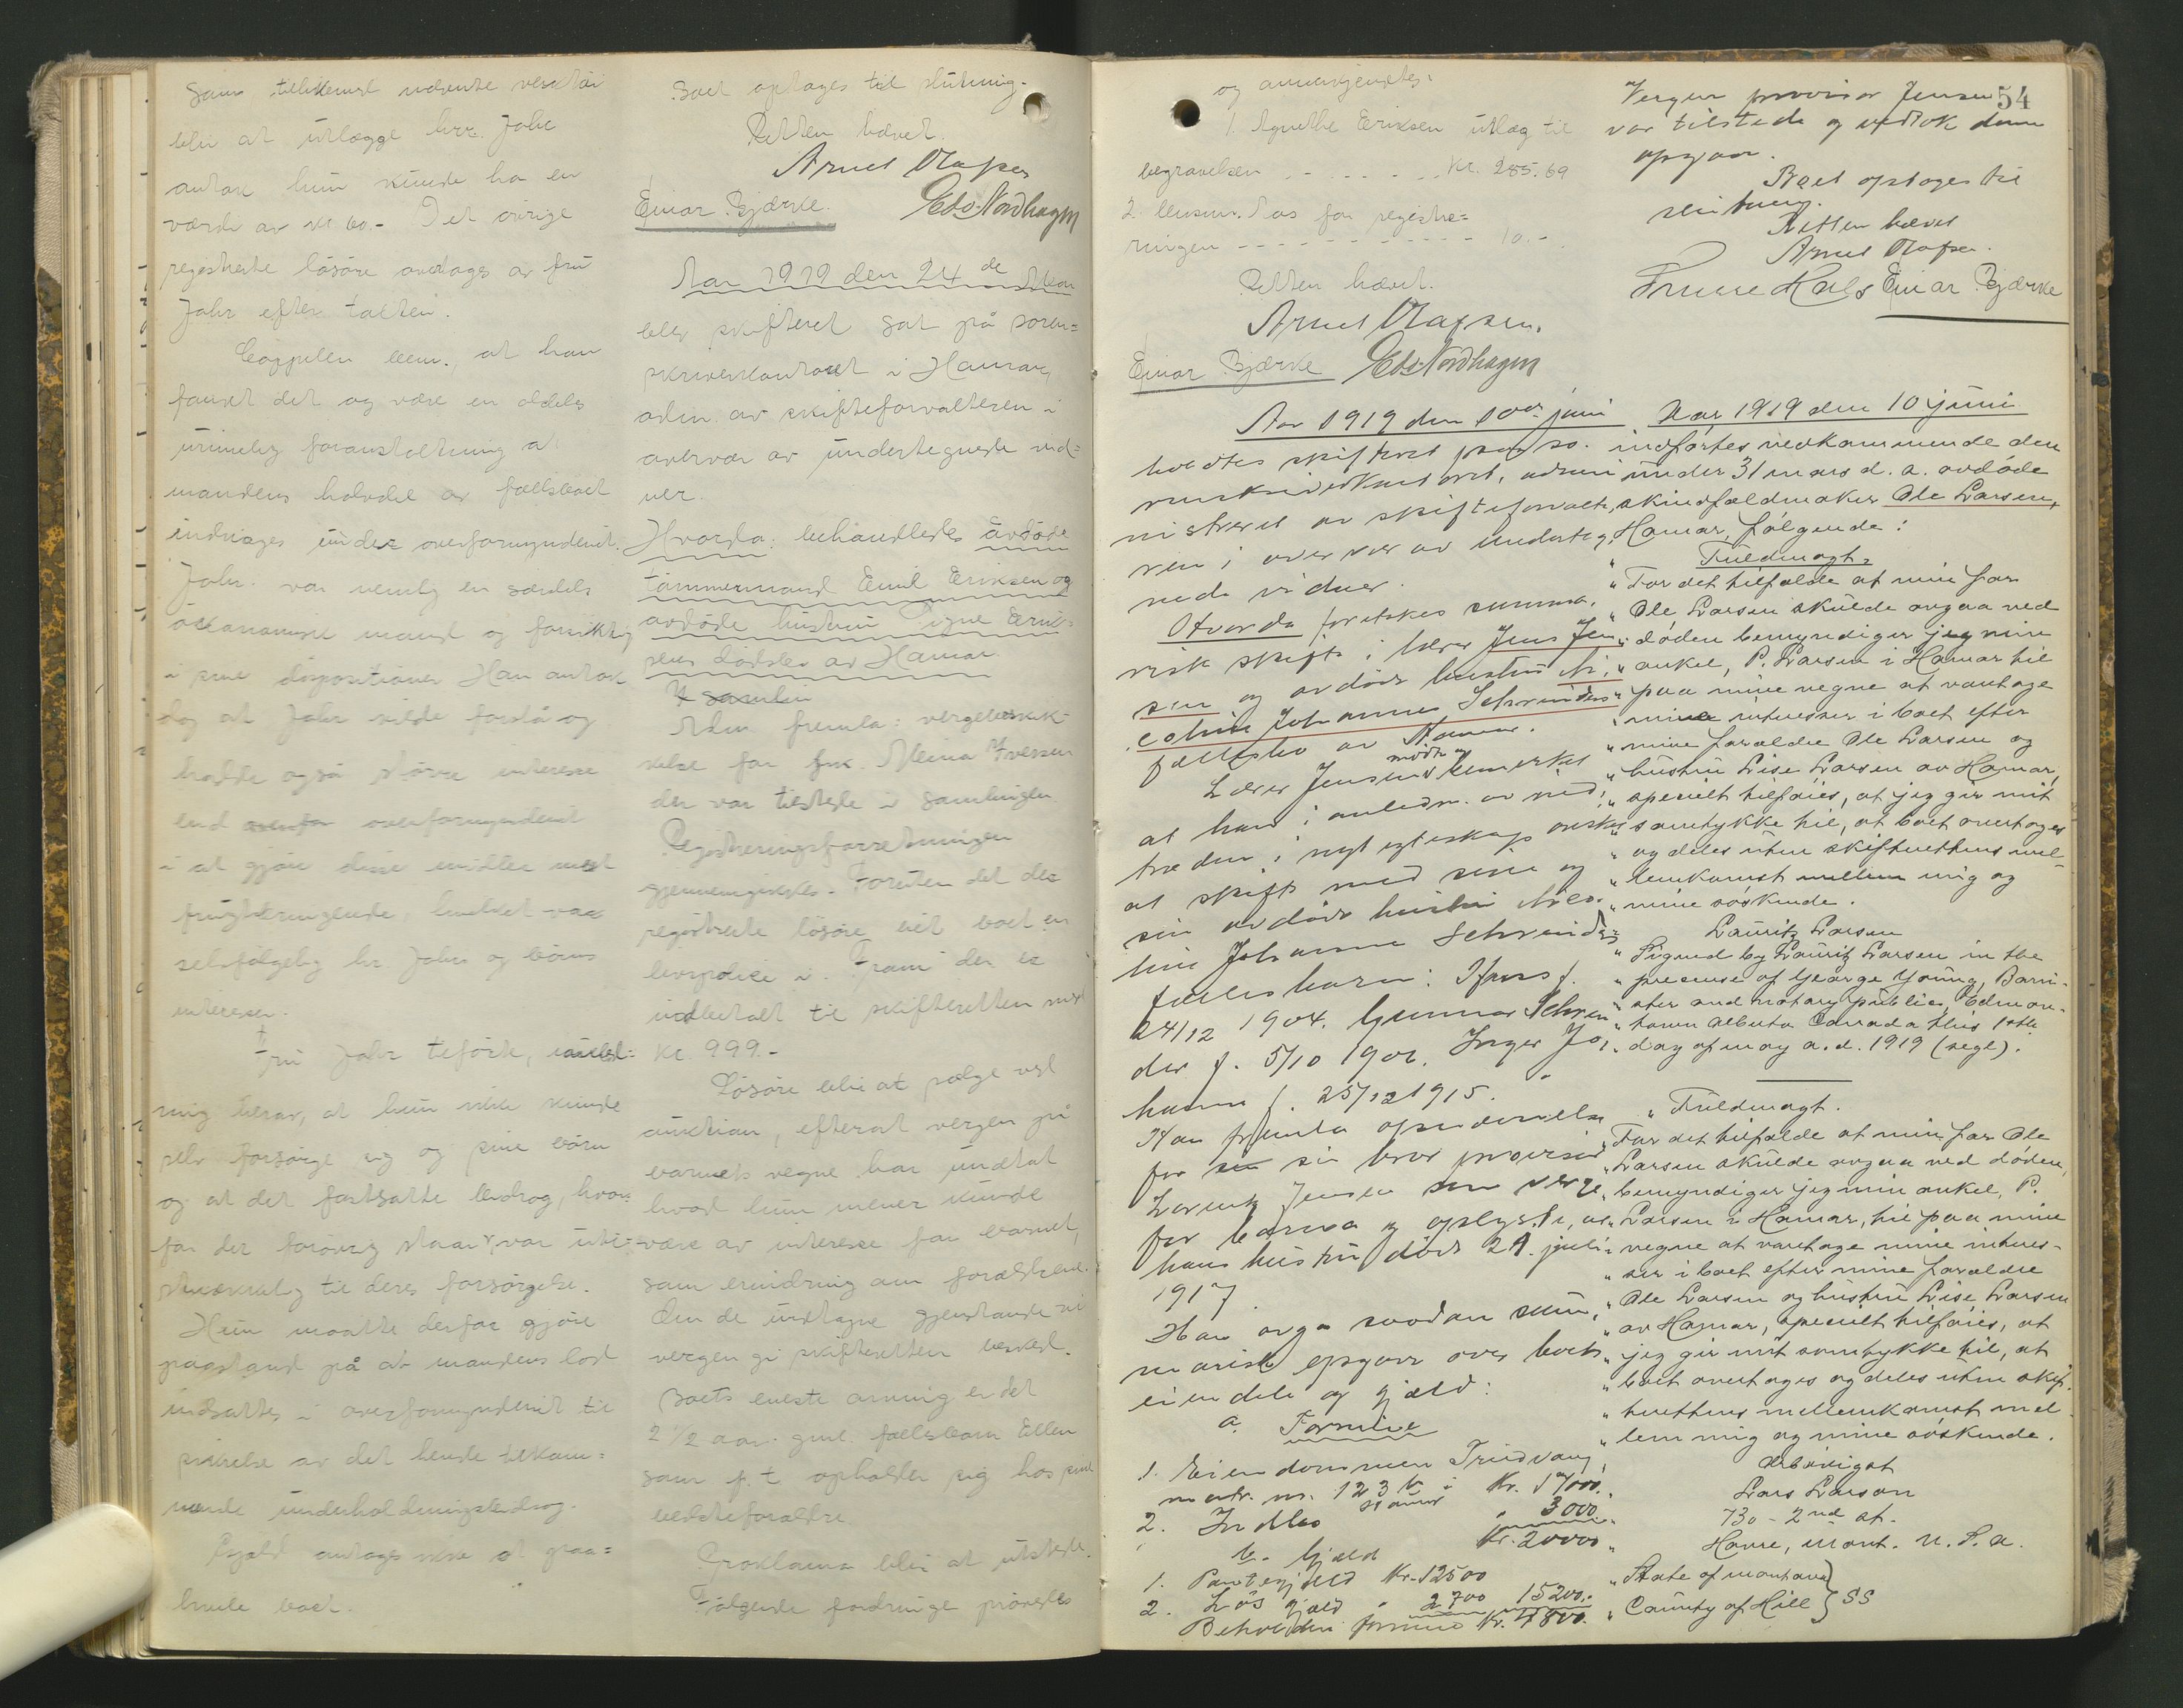 Som tillikemed nævnte verktöi
blir at utlægge hrr. Jahr
antok hun kunde ha en
værdi av kr 60.- Det øvrige
registrerte lösöre overtages av fru
Jahr efter taksten.
bem., at han
det og være en aldeles
urimelig foranstaltning at
mandens halvdel av fællesboet
inddrages under overformynderiet.
Jahr var nemlig en særdeles
økonomisk mand og forsiktig
i sine dispositioner Han antok
dog at Jahr vilde forstå og
hadde også större interesse
end overformynderiet
i at gjöre disse midler mest
frugtbringende, hvilket var
selvfölgelig hr. Jahrs og börns
interesse.
Fru Jahr tilförte,
mig herav, at hun ikke kunde
selv forsörge sig og sine börn
og at det fortsatte bidrag, hvor-
for der forövrig staar, var util-
strækkelig til deres forsörgelse.
Hun maatte derfor gjöre
paastand på at mandens lod
indsattes i overformynderiet til
sikrelse av det hende tilkom-
mende underholdningsbidrag.
Gjæld antages ikke at paa=
hvile boet.
Boet optages til slutning.
Retten hævet.
Arnet Olafsen
Einar Bjærke. Edv. Nordhagen
Aar 1919 den 24de Mai
blev skifteret sat på soren=
skriverkontoret i Hamar,
adm. av skifteforvalteren i
overvær av undertegnede vid=
ner.
Hvorda: behandledes avdöde
tömmermand Emil Eriksen og
avdöde hustru Signe Erik-
sens dödsbo av Hamar.
samlin
Adm. fremla: vergebeskik-
kelse for frk. Meina Iversen
der var tilstede i samlingen
Registreringsforretningen
gjennemgikkes. Foruten det der
registrerte lösöre eiet boet en
livspolice i "Fram" der er
indbetalt til skifteretten med
kr. 999.-
Lösöre blir at sælge ved
auktion, efterat vergen på
barnets vegne har undtat
hvad hun mener kunde
være av interesse for barnet,
som erindring om forældrene.
Om de undtagne gjenstande vil
vergen gi skifteretten besked.
Boets eneste arving er det
2 1/2 aar gml. fællesbarn Ellen
som f. t. opholder sig hos sine
bedsteforældre.
Proklama blir at utstede.
Fölgende fordringer prövedes
og anerkjendtes:
1. Agnethe Eriksen utlæg til
begravelsen - - - - - - - Kr. 285.69
2. for registre=
ringen - - - - - - - - - - - 10.-
Retten hævet.
Arnet Olafsen.
Einar Bjærke Edv. Nordhagen
Aar 1919 den 10de juni
holdtes skifteret paa so-
renskriverkontoret, admi-
nistreret av skifteforvalte-
ren i overvær av underteg-
nede vidner.
Hvorda foretokes summa-
risk skifte i lærer Jens Jen-
sen og avdöde hustru Ni-
coline Johanne Schrøders
fællesbo av Hamar.
Lærer Jensen mödte og bemerket
at han i anledn. av ind-
træden i nyt egteskap önsket
at skifte med sine og
sin avdöde hustru Nico-
line Johanne Schrøders
fællesbarn: Hans f.
24/12 1904. Gunnar Schrø-
der f. 5/10 1906. Inger Jo-
hanne f. 25/12 1915.
Han fremla opnævnelse
for sin bror provisor
Lorentz Jensen som verge
for barna og oplyste, at
hans hustru döde 29. juli
1917.
Han avga saadan sum-
marisk opgave over boets
eiendele og gjæld:
a. Formue
1. Eiendommen Trudvang,
matr. nr. 123 b i Hamar Kr. 17000.
2. Indbo " 3000.
Kr. 20000.
b. Gjæld
1. Pantegjæld Kr. 12500
2. Lös gjæld " 2700 15200.
Beholden formue Kr. 4800.
54
Vergen provisor Jensen
var tilstede og vedtok denne
opgave.
Boet optages til
slutning.
Retten hævet
Arnet Olafsen.
Einar Bjærke
Aar 1919 den 10 juni
indförtes vedkommende den
under 31 mars d. a. avdöde
skindfældmaker Ole Larsen,
Hamar, fölgende:
" Fuldmagt.
" For det tilfælde at min far
" Ole Larsen skulde avgaa ved
" döden bemyndiger jeg min
" onkel, P. Larsen i Hamar til
" paa mine vegne at varetage
" mine interesser i boet efter
" mine forældre Ole Larsen og
" hustru Lise Larsen av Hamar,
" specielt tilföies, at jeg gir mit
" samtykke til, at boet overtages
" og deles uten skifterettens mel-
" lemkomst mellem mig og
" mine söskende.
Lauritz Larsen
" Signed by Lauritz Larsen in the
" presence of George Young, Barri-
" ster and notary public, Edmon-
" town Alberta Canada this 1sth
" day of may a.d. 1919 (segl).
" Fuldmagt.
" For det tilfælde at min far Ole
" Larsen skulde avgaa ved döden,
" bemyndiger jeg min onkel, P.
" Larsen i Hamar, til paa mine
" vegne at varetage mine interes-
" ser i boet efter mine forældre
" Ole Larsen og hustru Lise Larsen
" av Hamar, specielt tilföies, at
" jeg gir mit samtykke til, at
" boet overtages og deles uten skif-
" terettens mellemkomst mel-
" lem mig og mine söskende.
Ærbödigst
Lars Larson
730 - 2nd St.
" Havre, Mont. U. S. A.
" State of Montana }
" County of Hill } SS